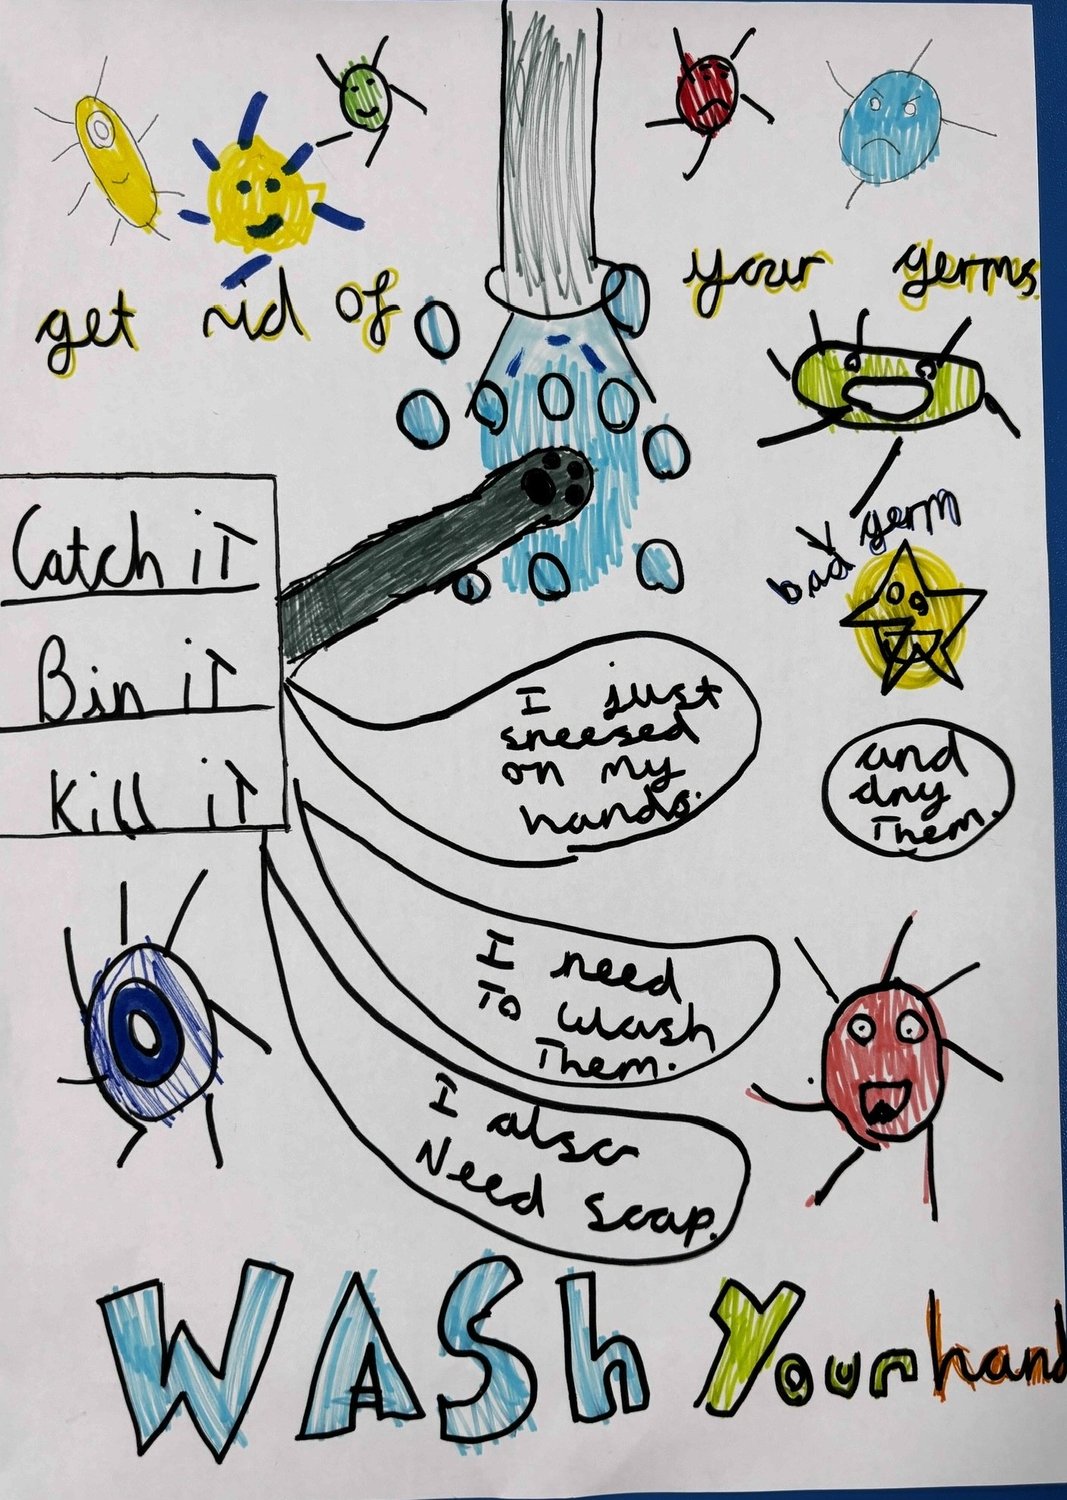 get rid of your germs.
Catch it
Bin it
Kill it
bady germ
I just
sneesed
on my
hands.
and
dry
Them.
I need
To wash
Them.
I also
Need soap.
WASh Your hand